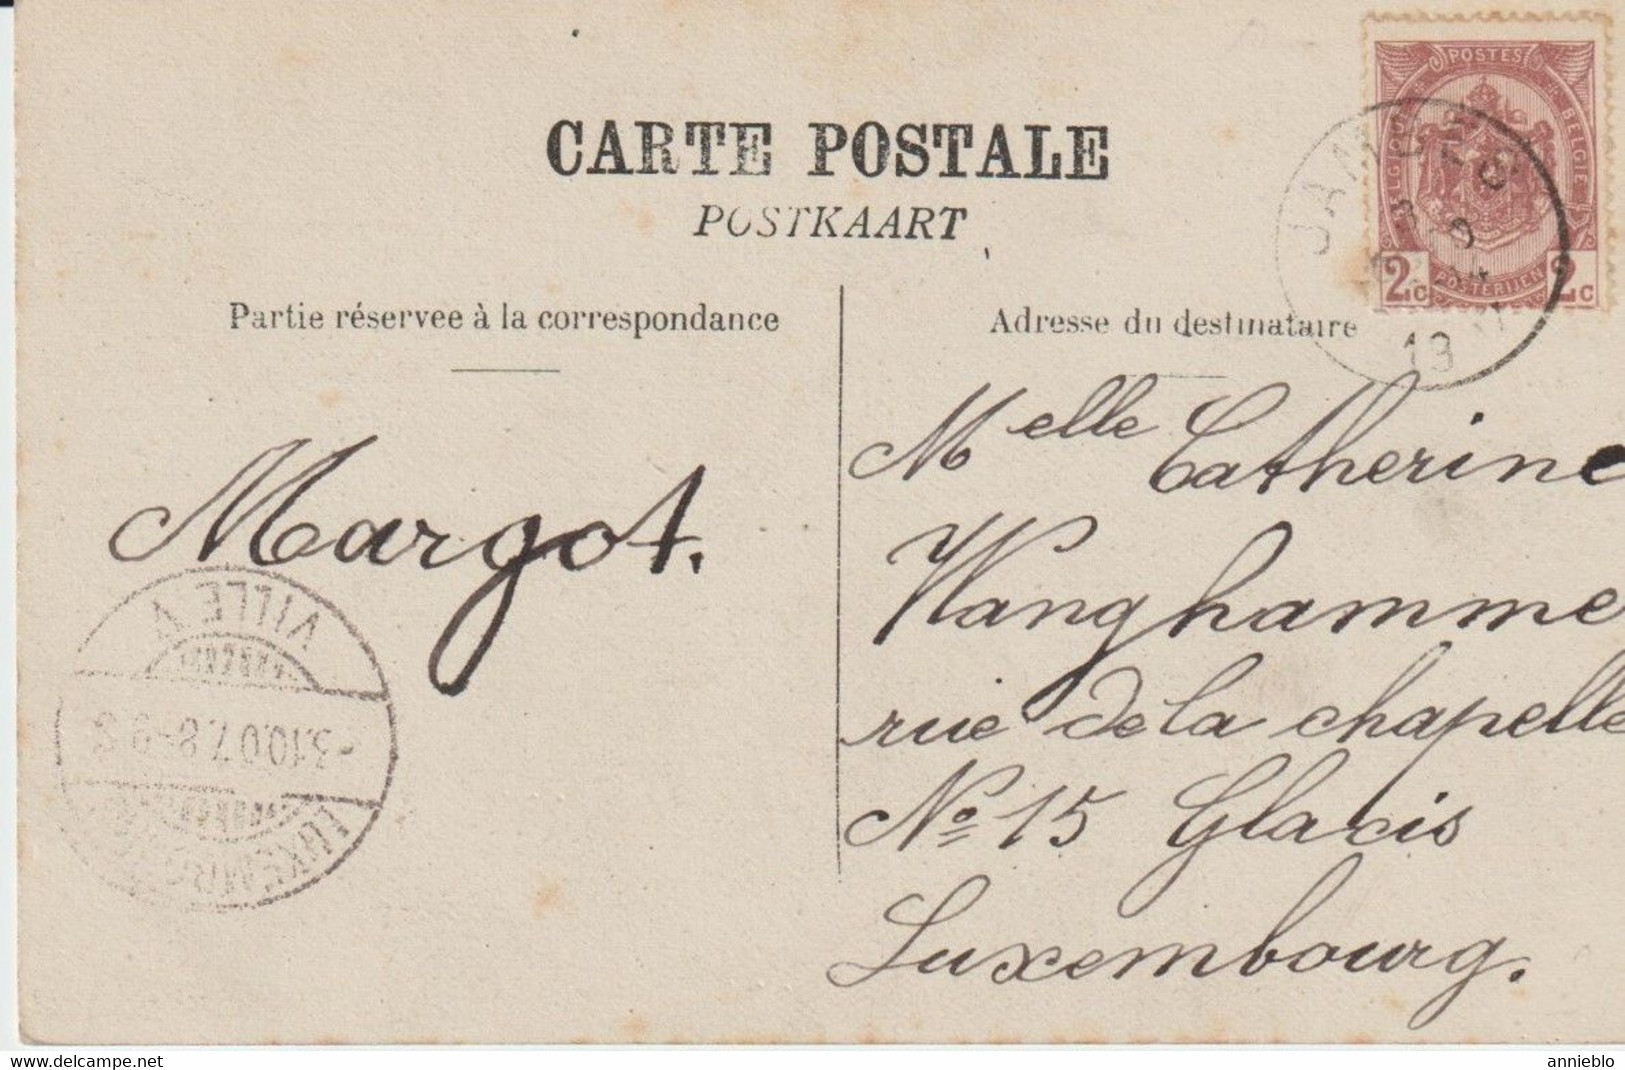 CARTE POSTALE
POSTKAART
POSTES
BELGIQUE
BELGIE
POSTERIJEN
2c
2c
13
Partie réservee à la correspondance
Adresse du destinataire
Margot.
Melle Catherine
Wanghamme
rue de la chapelle
No 15 Glacis
Luxembourg.
VILLE
3.10.07. 8-9
www.delcampe.net
annieblo